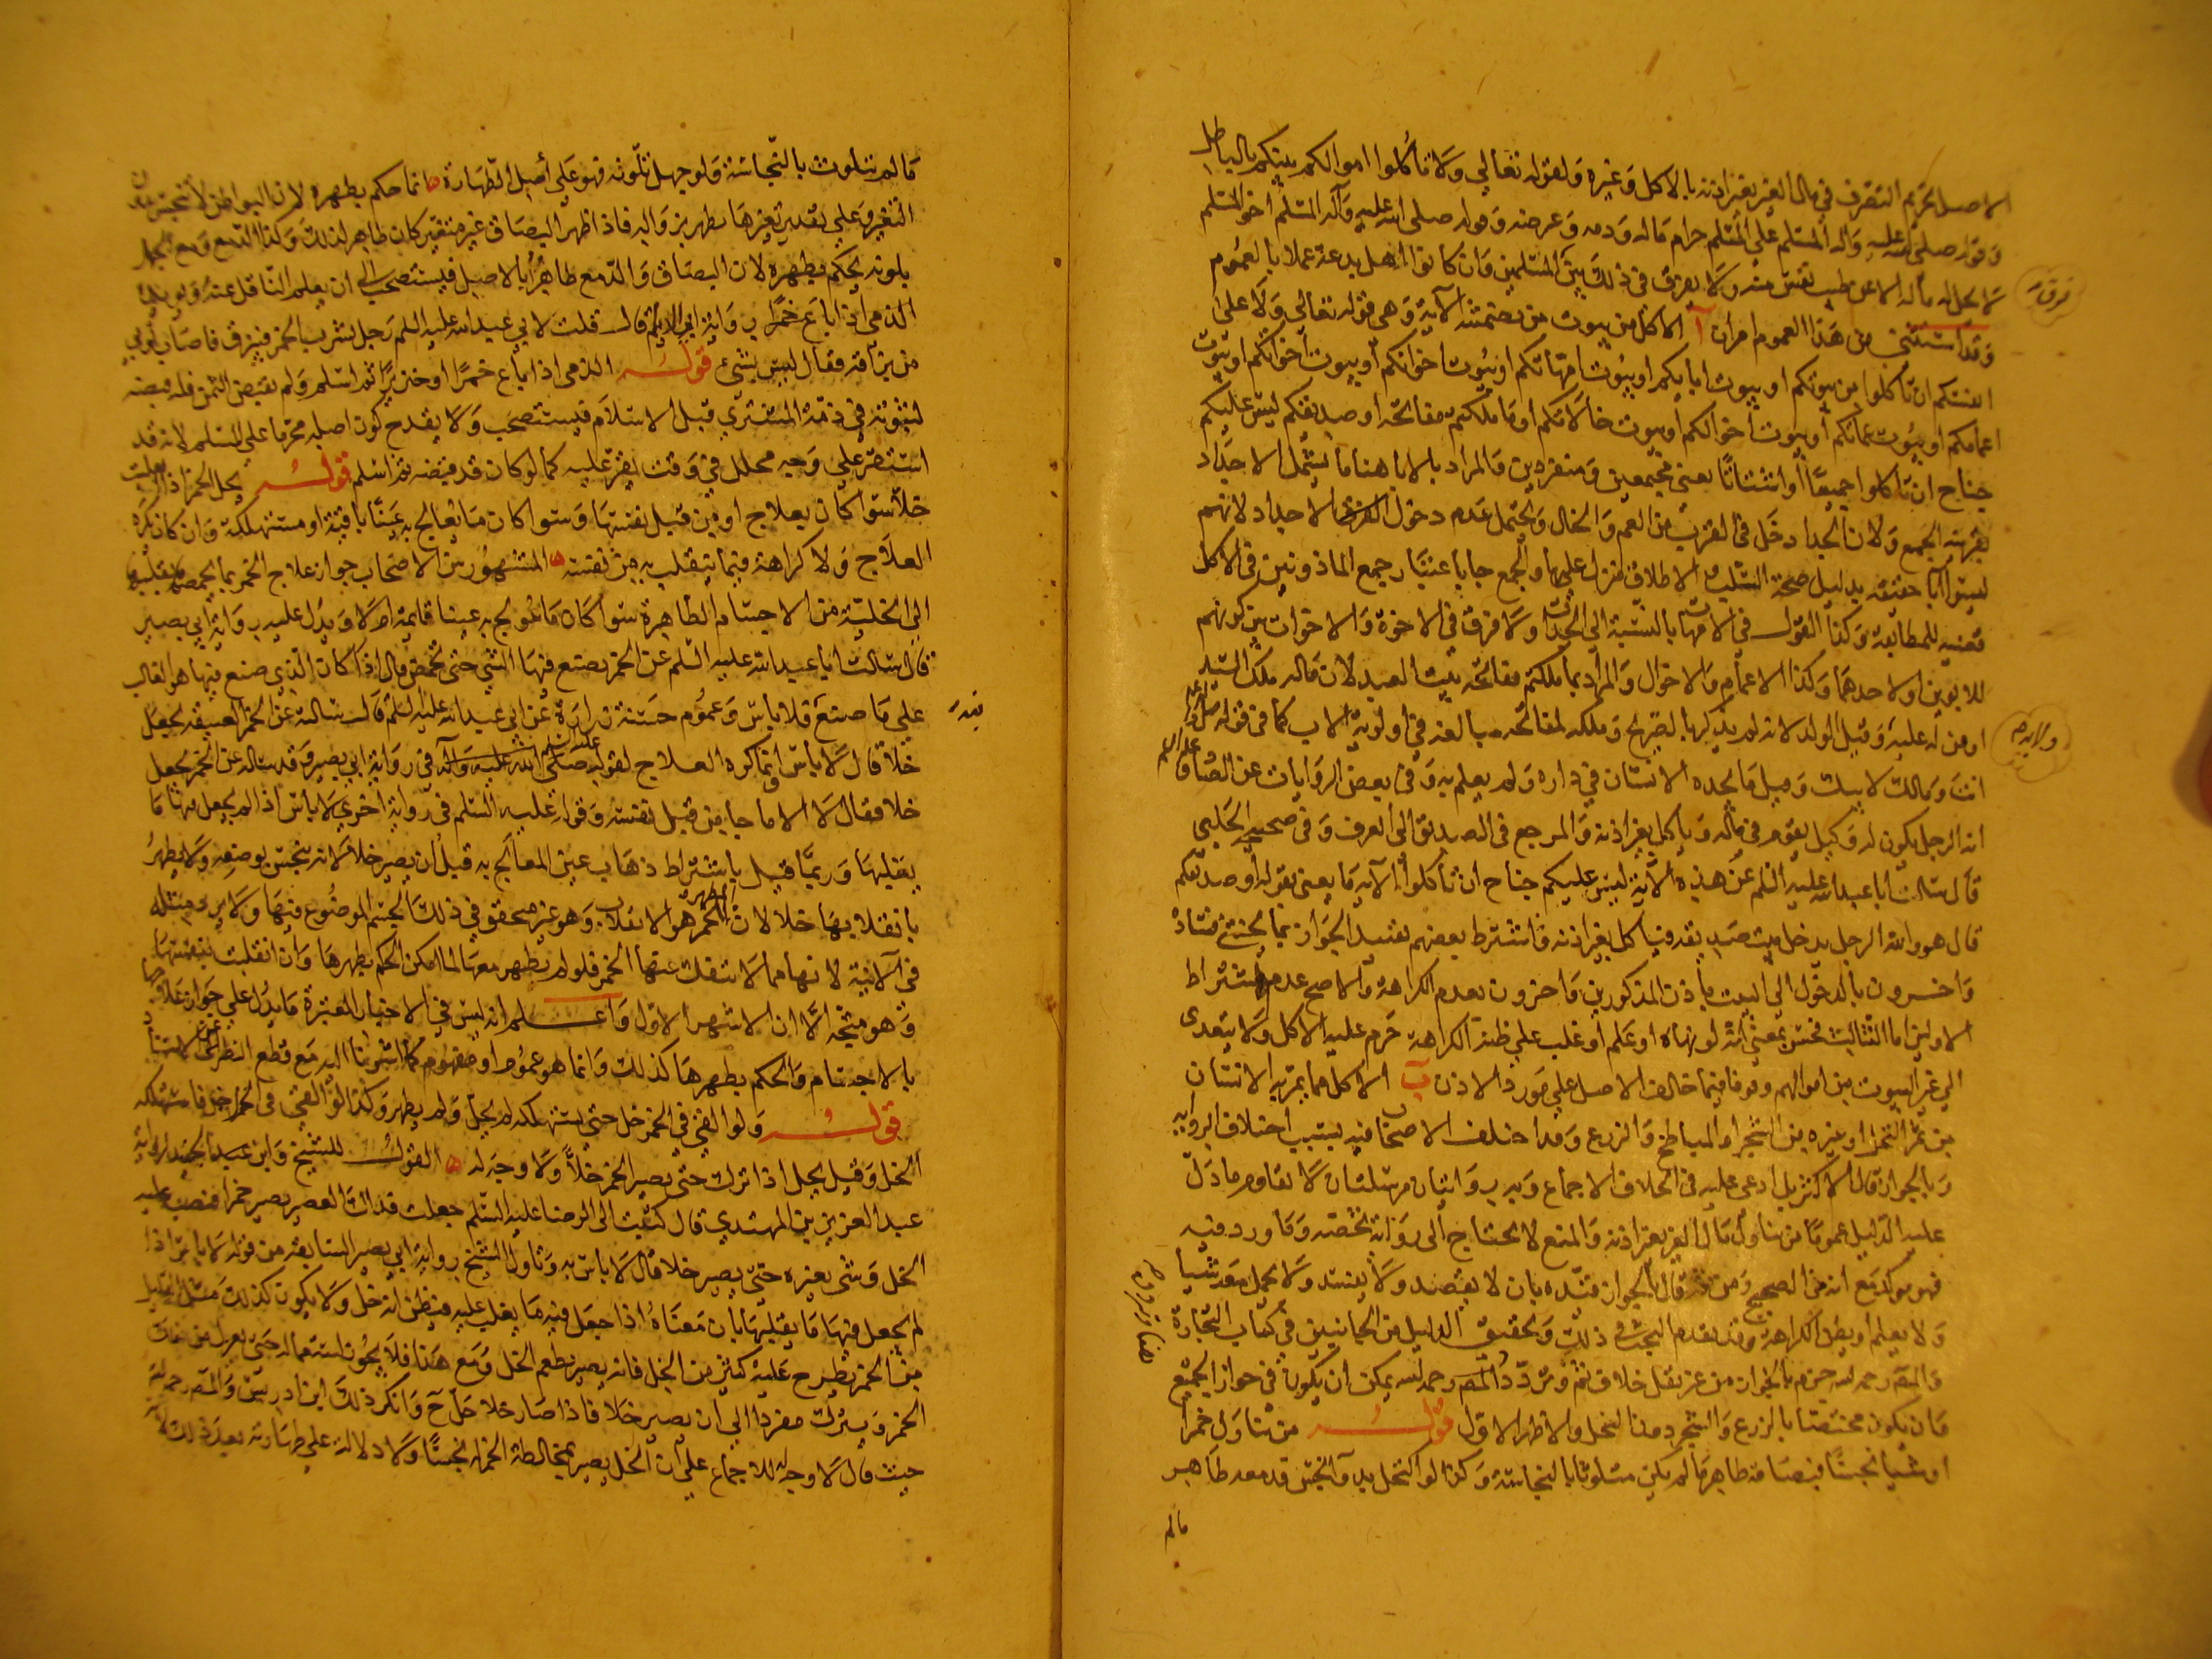 الاصل تحريم التصرف في مال الغير بغير اذنه بالاكل وغيره ولقوله تعالى ولا تأكلوا اموالكم بينكم بالباطل
وقوله صلى الله عليه واله المسلم على المسلم حرام ماله ودمه وعرضه وقوله صلى الله عليه وآله المسلم اخو المسلم
لا يحل له ماله الا عن طيب نفس منه ولا يعرف في ذلك بين المسلمين وان كانوا اهل بدعة عملا بالعموم
وقد استثنى من هذا العموم امران آ الاكل من بيوت من تضمنته الآية وهي قوله تعالى ولا على
انفسكم ان تأكلوا من بيوتكم او بيوت ابايكم او بيوت امهاتكم او بيوت اخوانكم او بيوت اخواتكم او بيوت
اعمامكم او بيوت عماتكم او بيوت اخوالكم او بيوت خالاتكم او ما ملكتم مفاتحه او صديقكم ليس عليكم
جناح ان تاكلوا جميعا او اشتاتا يعني مجتمعين ومنفردين والمراد بالابا هنا ما يشمل الاجداد
بقرينة الجمع ولان الجد ادخل في القرب من العم والخال ويحتمل عدم دخول الاجداد لانهم
ليسوا آبا حقيقة بدليل صحة السلب والجمع جا باعتبار جمع الماذونين في الاكل
فجمعه للمطابقة وكذا القول في الامهات بالنسبة الى الجدات ولا فرق في الاخوة والاخوات بين كونهم
للابوين او لاحدهما وكذا الاعمام والاخوال والمراد بما ملكتم مفاتحه بيت العبد لان ماله ملك السيد
او من له عليه وقيل الولد لانه لم يذكر بالصريح وملكه لمفاتحه مبالغة في اولوية الاب كما في قوله صلى الله عليه وآله
انت ومالك لابيك وقيل ما يجده الانسان في داره ولم يعلم به وفي بعض الروايات عن الصادق عليه السلم
انه الرجل يكون له وكيل يقوم في ماله وياكل بغير اذنه والمرجع في الصديق الى العرف وفي صحيحة الحلبي
قال سالت ابا عبد الله عليه السلم عن هذه الآية ليس عليكم جناح ان تأكلوا الآية ما يعني بقوله او صديقكم
قال هو والله الرجل يدخل بيت صديقه فياكل بغير اذنه فاشترط بعضهم تقييد الجواز بما يخشى فساده
وآخرون بالدخول الى البيت باذن المذكورين وآخرون بعدم الكراهة والاصح عدم اشتراط
الاولين اما الثالث فحسن بمعنى انه لو نهاه او علم او غلب على ظنه الكراهة حرم عليه الاكل ولا يتعدى
الى غير البيوت من اموالهم وقوفا فيما خالف الاصل على مورد الاذن ب الاكل مما يمر به الانسان
من ثمر النخل او غيره من الشجر او المباطخ والزرع وقد اختلف الاصحاب فيه بسبب اختلاف الرواية
وبالجواز قال الاكثر بل ادعى عليه في الخلاف الاجماع وبه روايتان مرسلتان لا تقاوم ما دل
عليه الدليل عموما من تناول مال الغير بغير اذنه والمنع لا يحتاج الى رواية تخصه وما ورد فيه
فهو موكد مع انه من الصحيح ومن ثم قال بالجواز قيده بان لا يقصد ولا يفسد ولا يحمل معه شيا
ولا يعلم او يظن الكراهة وقد تقدم البحث في ذلك وتحقيق الدليل من الجانبين في كتاب التجارة
والمص رحمه الله جزم بالجواز من غير نقل خلاف ثم وتردد المص رحمه الله يمكن ان يكون في جواز الجميع
وان يكون مختصا بالزرع والشجر دون النخل والاظهر الاول قوله من تناول خمرا
او شيا نجسا فبصاقه طاهر ما لم يكن متلوثا بالنجاسة وكذا لو اكتحل بدواء نجس فدمعه طاهر
ما لم
ما لم يتلوث بالنجاسة ولو جهل تلوثه فهو على اصل الطهارة انما حكم بطهره لان البواطن لا تنجس بدون
التغير وعلى تقدير تغيرها يطهر بزواله فاذا ظهر البصاق غير متغير كان طاهرا لذلك وكذا الدمع ومع الجهل
بلونه يحكم بطهره لان البصاق والدمع طاهر بالاصل فيستصحب الى ان يعلم الناقل عنه ويؤيد
رواية ابي الديلم قال قلت لابي عبد الله عليه السلم رجل يشرب الخمر فيبزق فاصاب ثوبي
من بزاقه فقال ليس بشيء قوله الذمي اذا باع خمرا او خنزيرا ثم اسلم ولم يقبض الثمن فله قبضه
لثبوته في ذمة المشتري قبل الاسلام فيستصحب ولا يقدح كون اصله محرما على المسلم لانه قد
استقر على وجه محلل في وقت يقر عليه كما لو كان قد قبضه ثم اسلم قوله يحل الخمر اذا انقلبت
خلا سوا كان بعلاج او من قبل نفسها وسوا كان ما يعالج به عينا باقية او مستهلكة وان كان يكره
العلاج ولا كراهة فيما ينقلب من نفسه المشهور بين الاصحاب جواز علاج الخمر بما يحمضها ويقلبها
الى الخلية من الاجسام الطاهرة سوا كان ما عولج به عينا قايمة ام لا ويدل عليه رواية ابي بصير
قال سالت ابا عبد الله عليه السلم عن الخمر يصنع فيها الشي حتى تحمض قال اذا كان الذي صنع فيها هو الغالب
على ما صنع فلا باس وعموم حسنة زرارة عن ابي عبد الله عليه السلم قال سالته عن الخمر العتيقة تجعل
خلا قال لا باس وانما كره العلاج لقوله عليه السلم في رواية ابي بصير وقد ساله عن الخمر تجعل
خلا فقال لا الا ما جا من قبل نفسه وقوله عليه السلم في رواية اخرى لا باس اذا لم يجعل فيها ما
يقلبها وربما قيل باشتراط ذهاب عين المعالج به قبل ان يصير خلا لانه ينجس بوضعه ولا يطهر
بانقلابها خلا لان المطهر للخمر هو الانقلاب وهو غير متحقق في ذلك الجسم الموضوع فيها ولا يرد مثله
في الآنية لانها مما لا تنفك عنها الخمر فلو لم يطهر معها لما امكن الحكم بطهرها وان انقلبت بنفسها
وهو متجه الا ان الاشهر الاول واعلم انه ليس في الاخبار المعتبرة ما يدل على جواز علاجها
بالاجسام والحكم بطهرها كذلك وانما هو عموم او مفهوم كما اشرنا اليه مع قطع النظر عن الاسناد
قوله ولو القي في الخمر خل حتى تستهلكه لم يحل ولم يطهر وكذا لو القي في الخل خمر فاستهلكه
الخل وقيل يحل اذا ترك حتى يصير الخمر خلا ولا وجه له القول للشيخ وابن عبد الجنيد لرواية
عبد العزيز بن المهتدي قال كتبت الى الرضا عليه السلم جعلت فداك العصير يصير خمرا فيصب عليه
الخل وشي يغيره حتى يصير خلا قال لا باس به وتاول الشيخ رواية ابي بصير السابقة من قوله لا باس اذا
لم يجعل فيها ما يقلبها بان معناه اذا جعل فيه ما يغلب عليه فيظن انه خل ولا يكون كذلك مثل القليل
من الخمر يطرح عليه كثير من الخل فانه يصير بطعم الخل ومع هذا فلا يجوز استعماله حتى يعزل من تلك
الخمر ويترك مفردا الى ان يصير خلا فاذا صار خلا حل ح وانكر ذلك ابن ادريس والمص رحمه الله
حيث قال لا وجه له للاجماع على ان الخل يصير بمخالطة الخمر له نجسا ولا دلالة على طهارته بعد ذلك لانه